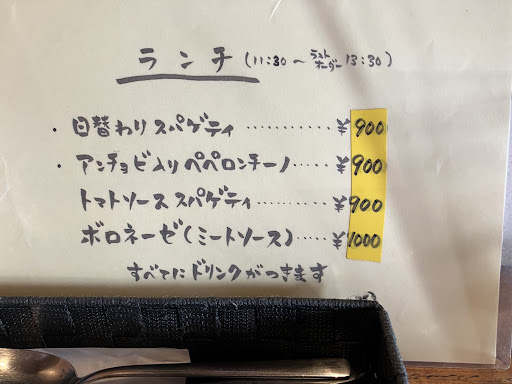 ランチ (11:30 ~ ラストオーダー 13:30)
・日替わりスパゲティ ………… ¥900
・アンチョビ入りペペロンチーノ …… ¥900
トマトソーススパゲティ …… ¥900
ボロネーゼ(ミートソース) …… ¥1000
すべてにドリンクがつきます